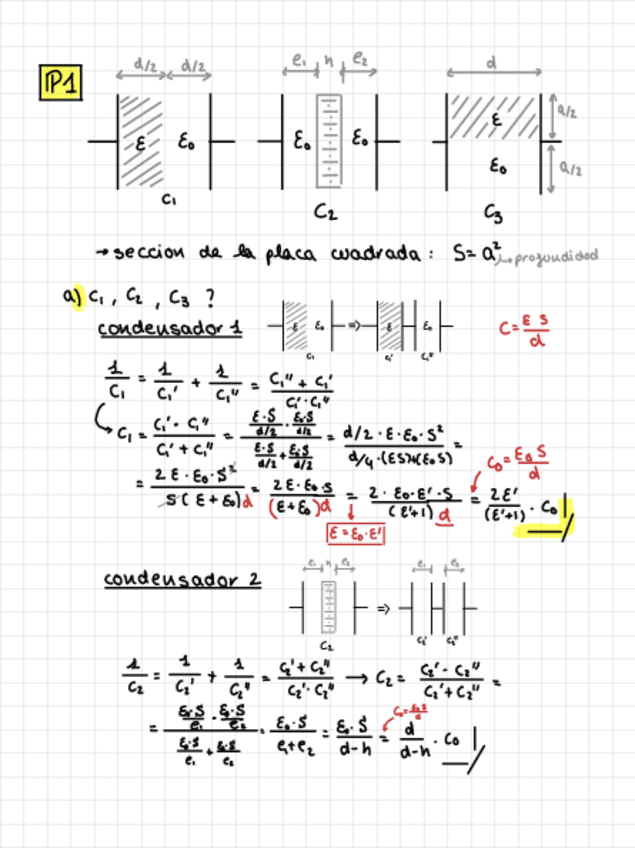 P1
d/2 d/2 e₁ h e₂ d
ε ε₀ ε₀ ε₀ ε a/2
ε₀ a/2
C₁ C₂ C₃
→ seccion de la placa cuadrada : S = a² ↳ profundidad
a) C₁, C₂, C₃ ?
condensador 1
ε ε₀ => ε ε₀
C₁ C₁' C₁''
C = ε S / d
1/C₁ = 1/C₁' + 1/C₁'' = (C₁'' + C₁') / (C₁' · C₁'')
C₁ = (C₁' · C₁'') / (C₁' + C₁'') = (ε·S/d/2 · ε₀·S/d/2) / (ε·S/d/2 + ε₀·S/d/2) = (d/2 · ε · ε₀ · S²) / (d/4 · (εS)+(ε₀S)) =
= (2ε · ε₀ · S²) / (S(ε + ε₀)d) = (2ε · ε₀ · S) / ((ε + ε₀)d) = (2 · ε₀ · ε' · S) / ((ε'+1) d) = 2ε' / (ε'+1) · C₀
C₀ = ε₀ S / d
ε = ε₀·ε'
condensador 2
e₁ h e₂ e₁ e₂
=>
C₂ C₂' C₂''
1/C₂ = 1/C₂' + 1/C₂'' = (C₂' + C₂'') / (C₂' · C₂'') → C₂ = (C₂' · C₂'') / (C₂' + C₂'') =
= (ε₀·S/e₁ · ε₀·S/e₂) / (ε₀·S/e₁ + ε₀·S/e₂) = ε₀·S / (e₁+e₂) = ε₀·S / (d-h) = d / (d-h) · C₀
C₀ = ε₀·S / d